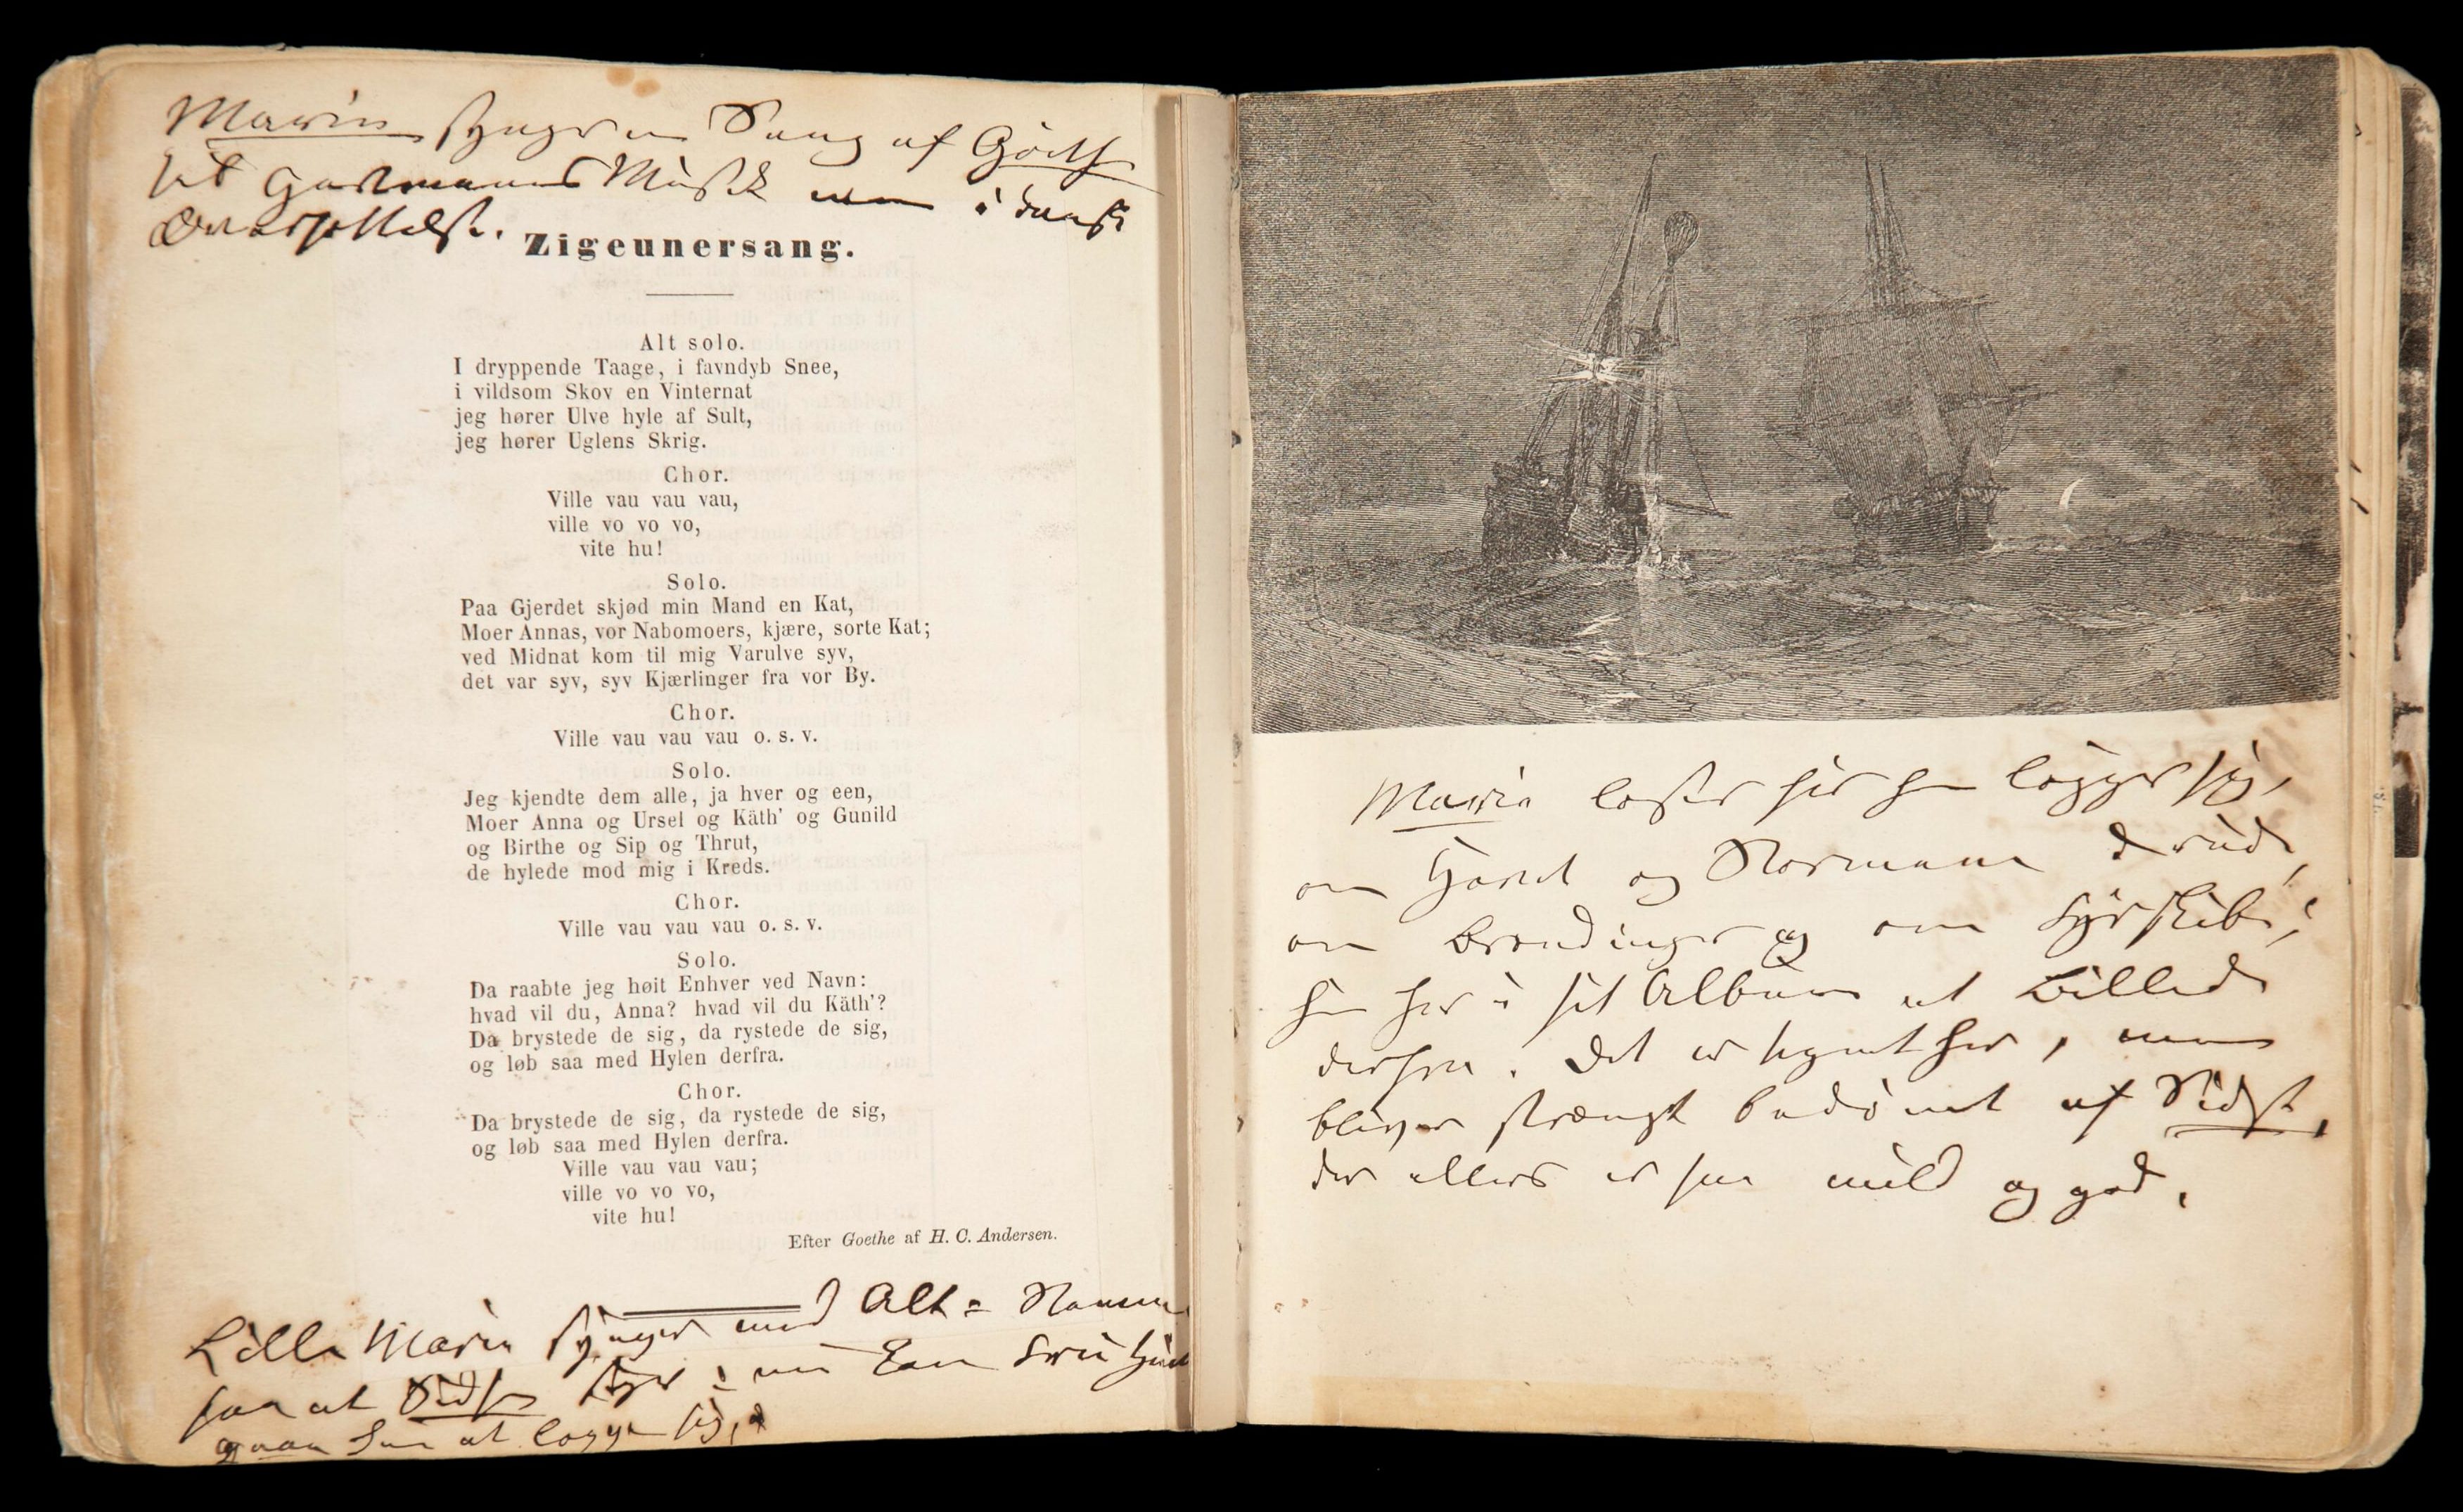 Marie synger en Sang af Göethe
til Hartmanns Musik men i dansk
Oversættelse.
Zigeunersang.
Alt solo.
I dryppende Taage, i favndyb Snee,
i vildsom Skov en Vinternat
jeg hører Ulve hyle af Sult,
jeg hører Uglens Skrig.
Chor.
Ville vau vau vau,
ville vo vo vo,
vite hu!
Solo.
Paa Gjerdet skjød min Mand en Kat,
Moer Annas, vor Nabomoers, kjære, sorte Kat;
ved Midnat kom til mig Varulve syv,
det var syv, syv Kjærlinger fra vor By.
Chor.
Ville vau vau vau o. s. v.
Solo.
Jeg kjendte dem alle, ja hver og een,
Moer Anna og Ursel og Käth' og Gunild
og Birthe og Sip og Thrut,
de hylede mod mig i Kreds.
Chor.
Ville vau vau vau o. s. v.
Solo.
Da raabte jeg høit Enhver ved Navn:
hvad vil du, Anna? hvad vil du Käth'?
Da brystede de sig, da rystede de sig,
og løb saa med Hylen derfra.
Chor.
Da brystede de sig, da rystede de sig,
og løb saa med Hylen derfra.
Ville vau vau vau;
ville vo vo vo,
vite hu!
Efter Goethe af H. C. Andersen.
Lille Marie synger med Alt=Stemme
saa at siger: nu kan
gaae hen at lægge sig,
Marie læser før hun lægger sig,
om Havet og Stormene derude,
om Brændinger og om Fyrskibe;
hun har i sit Album et Billede
derfra. Det er tegnet her, men
bliver strængt bedømt af
der ellers er saa mild og god.